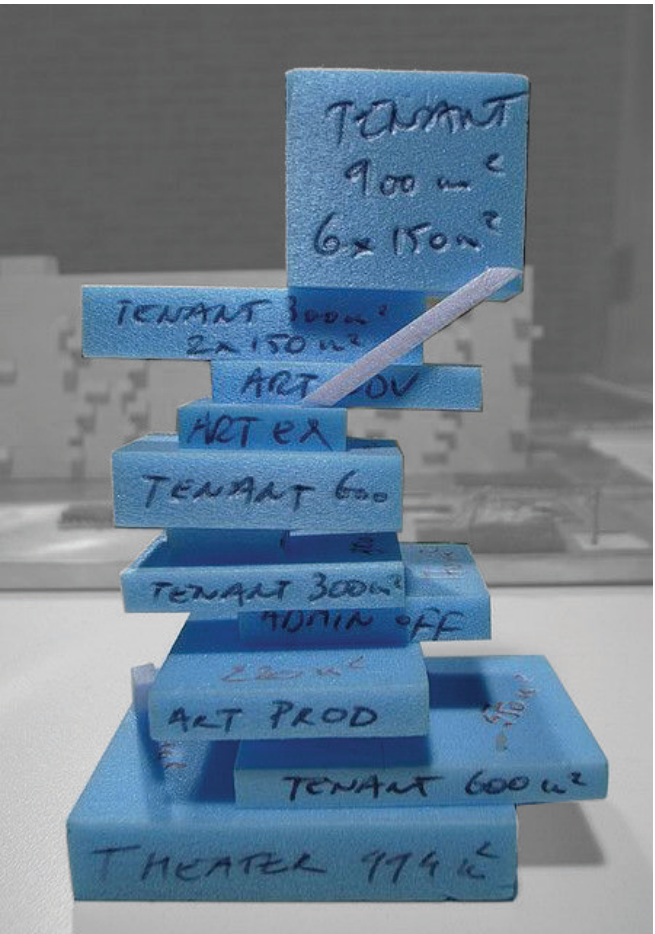 TENANT
900 m²
6x150m²
TENANT 300m²
2x150m²
ART
ART EX
TENANT 600
TENANT 300m²
ADMIN OFF
220 m²
ART PROD
TENANT 600 m²
THEATER 994 m²